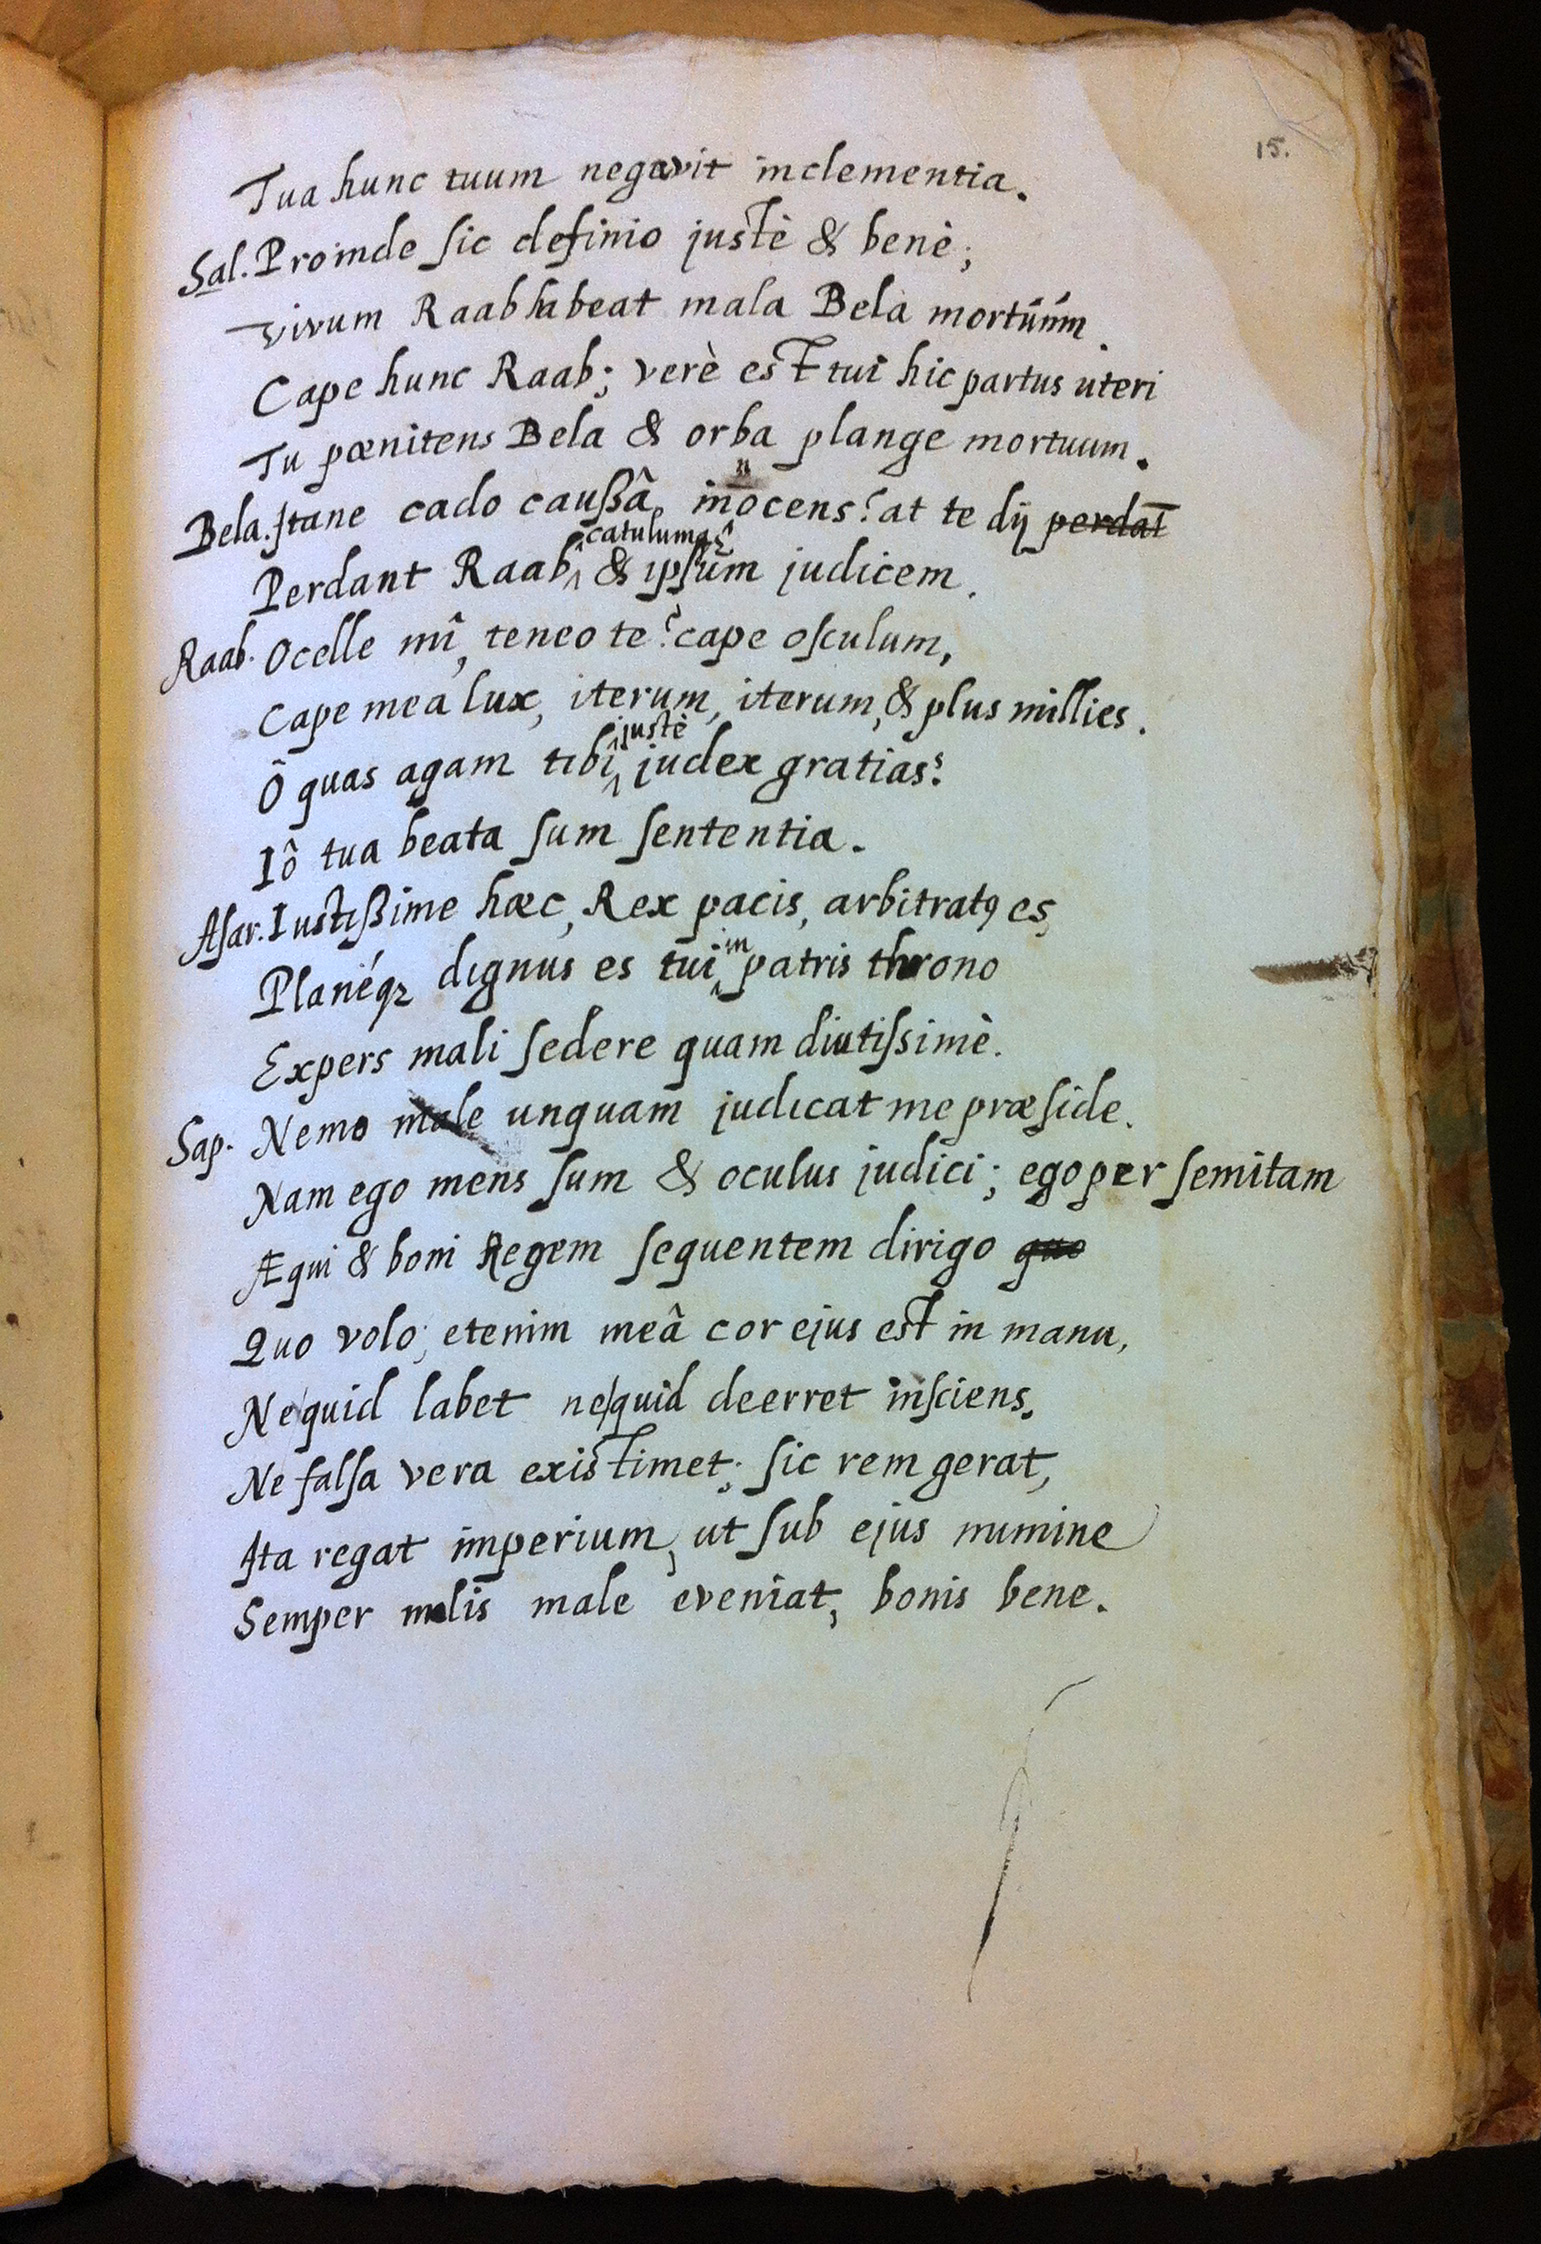 15.
Tua hunc tuum negavit inclementia.
Sal. Proinde sic definio justè & benè;
Vivum Raab habeat mala Bela mortuum.
Cape hunc Raab; verè est tui hic partus uteri
Tu pœnitens Bela & orba plange mortuum.
n
Bela. Itane cado caußâ inocens? at te dij perdāt
catulumq̃
Perdant Raab & ipsum judicem.
Raab. Ocelle mî, teneo te? cape osculum,
Cape mea lux, iterum, iterum, & plus millies.
justè
Ô quas agam tibi judex gratias?
Iô tua beata sum sententia.
Asar. Iustißime hæc, Rex pacis, arbitratꝰ es,
in
Planéqꝫ dignus es tui patris throno
Expers mali sedere quam diutissimè.
Sap. Nemo male unquam judicat me præside.
Nam ego mens sum & oculus judici; ego per semitam
Æqui & boni Regem sequentem dirigo quo
Quo volo; etenim meâ cor ejus est in manu,
Ne quid labet ne quid deerret insciens.
Ne falsa vera existimet; sic rem gerat,
Ita regat imperium, ut sub ejus numine
Semper malis male eveniat, bonis bene.